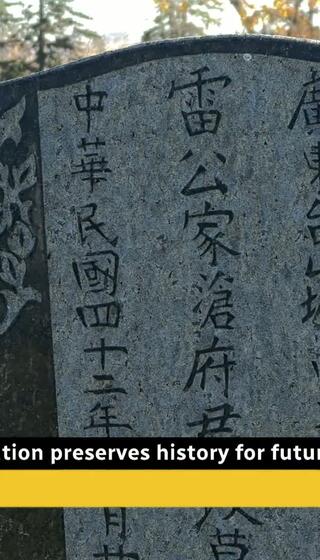 廣東台山城
雷公家滄府君
中華民國四十二年
tion preserves history for futur